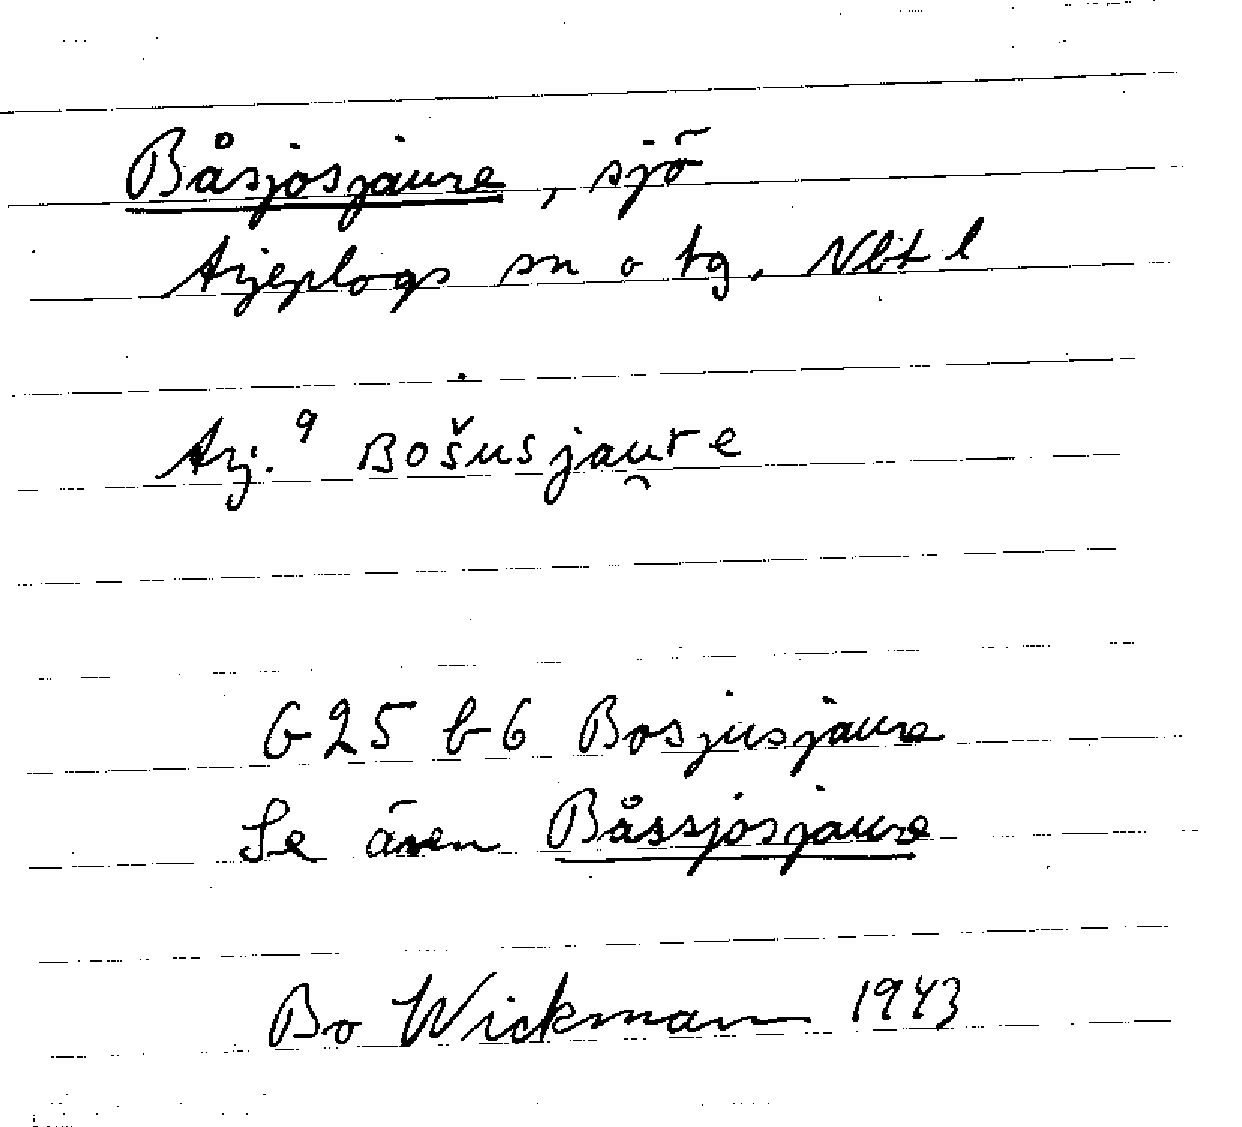 Båsjosjaure, sjö
Arjeplogs sn o tg. Nbt l
Arj.9 Bošusjau̯re
G25 b6 Bosjusjaure
Se även Båssjosjaure
Bo Wickmann 1943